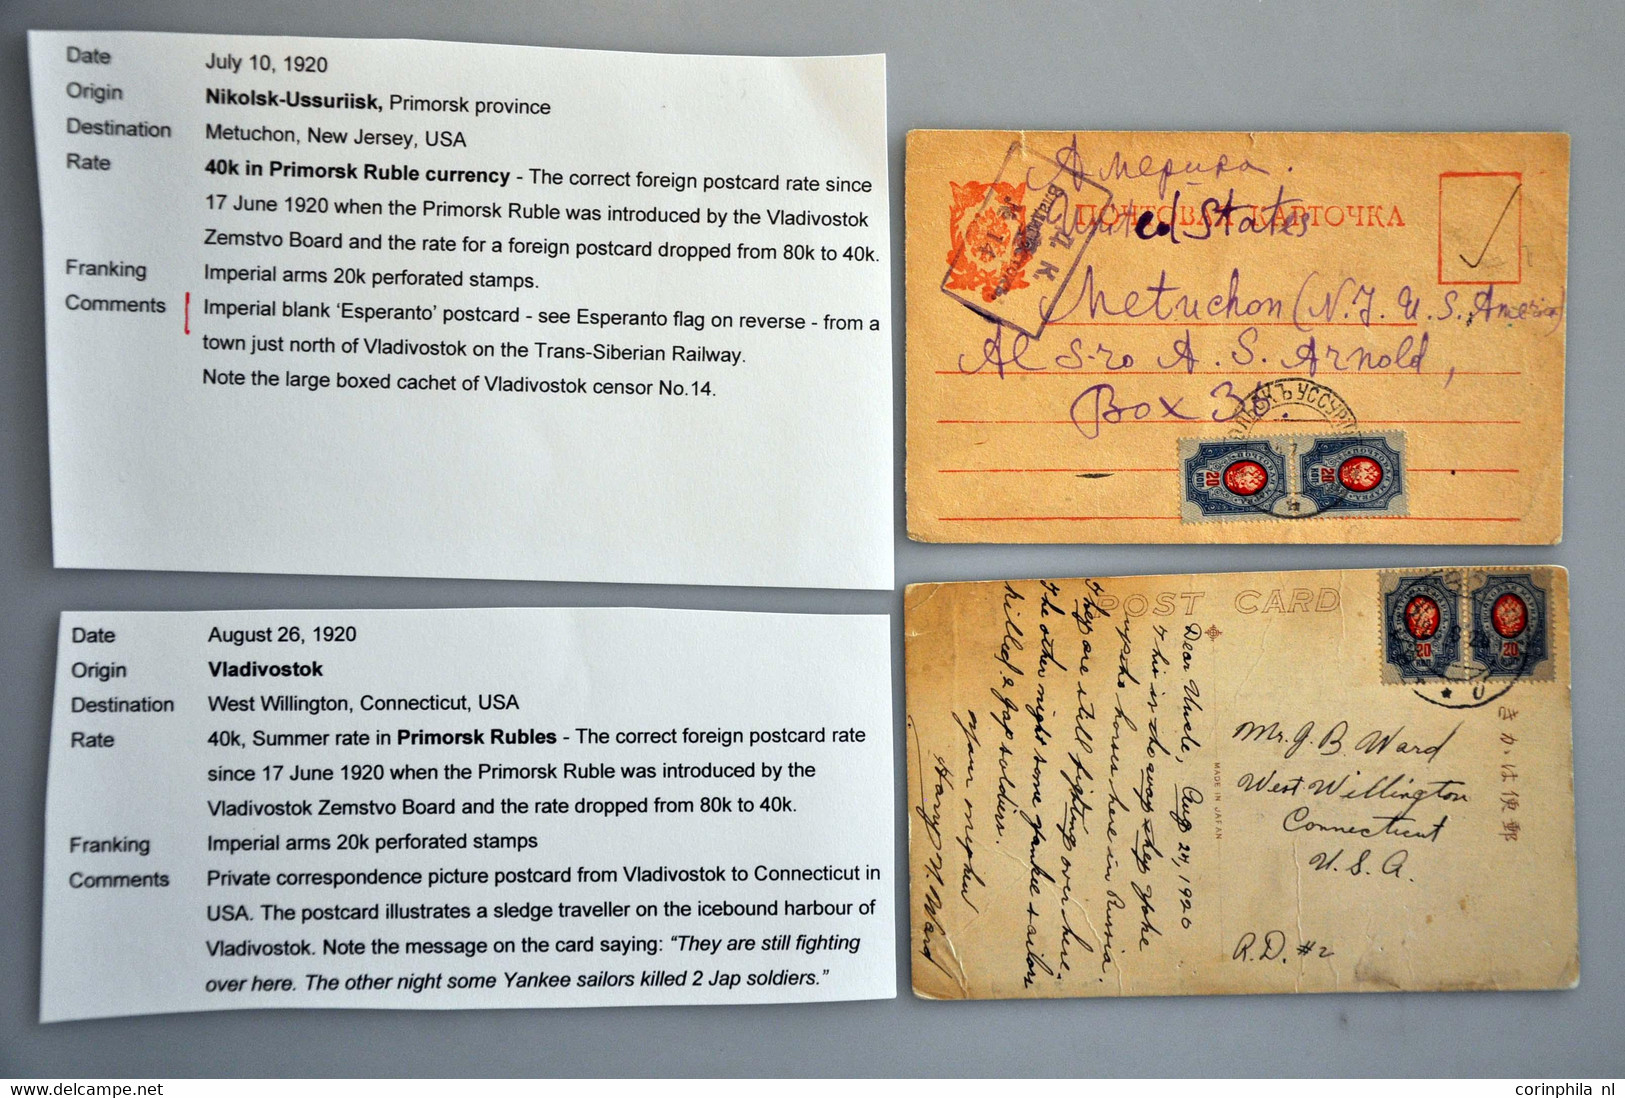 Date July 10, 1920
Origin Nikolsk-Ussuriisk, Primorsk province
Destination Metuchon, New Jersey, USA
Rate 40k in Primorsk Ruble currency - The correct foreign postcard rate since
17 June 1920 when the Primorsk Ruble was introduced by the Vladivostok
Zemstvo Board and the rate for a foreign postcard dropped from 80k to 40k.
Franking Imperial arms 20k perforated stamps.
Comments Imperial blank ‘Esperanto’ postcard - see Esperanto flag on reverse - from a
town just north of Vladivostok on the Trans-Siberian Railway.
Note the large boxed cachet of Vladivostok censor No.14.
Date August 26, 1920
Origin Vladivostok
Destination West Willington, Connecticut, USA
Rate 40k, Summer rate in Primorsk Rubles - The correct foreign postcard rate
since 17 June 1920 when the Primorsk Ruble was introduced by the
Vladivostok Zemstvo Board and the rate dropped from 80k to 40k.
Franking Imperial arms 20k perforated stamps
Comments Private correspondence picture postcard from Vladivostok to Connecticut in
USA. The postcard illustrates a sledge traveller on the icebound harbour of
Vladivostok. Note the message on the card saying: “They are still fighting
over here. The other night some Yankee sailors killed 2 Jap soldiers.”
Америка.
ПОЧТОВАЯ КАРТОЧКА
United States
Metuchon (N.J. U.S. America
Al S-ro A. S. Arnold,
Box
В Ц К
14
УССУР
20 КОП
20 КОП
POST CARD
Dear Uncle, Aug 24, 1920
this is the way they yoke
up the horses here in Russia.
They are still fighting over here.
the other night some yankee sailors
killed 2 Jap soldiers.
your nephew
Harry N. Ward
MADE IN JAPAN
20 КОП
20 КОП
Mr. J. B. Ward
West Willington
Connecticut
U. S. A.
R.D. #2
きかは便郵
corinphila nl